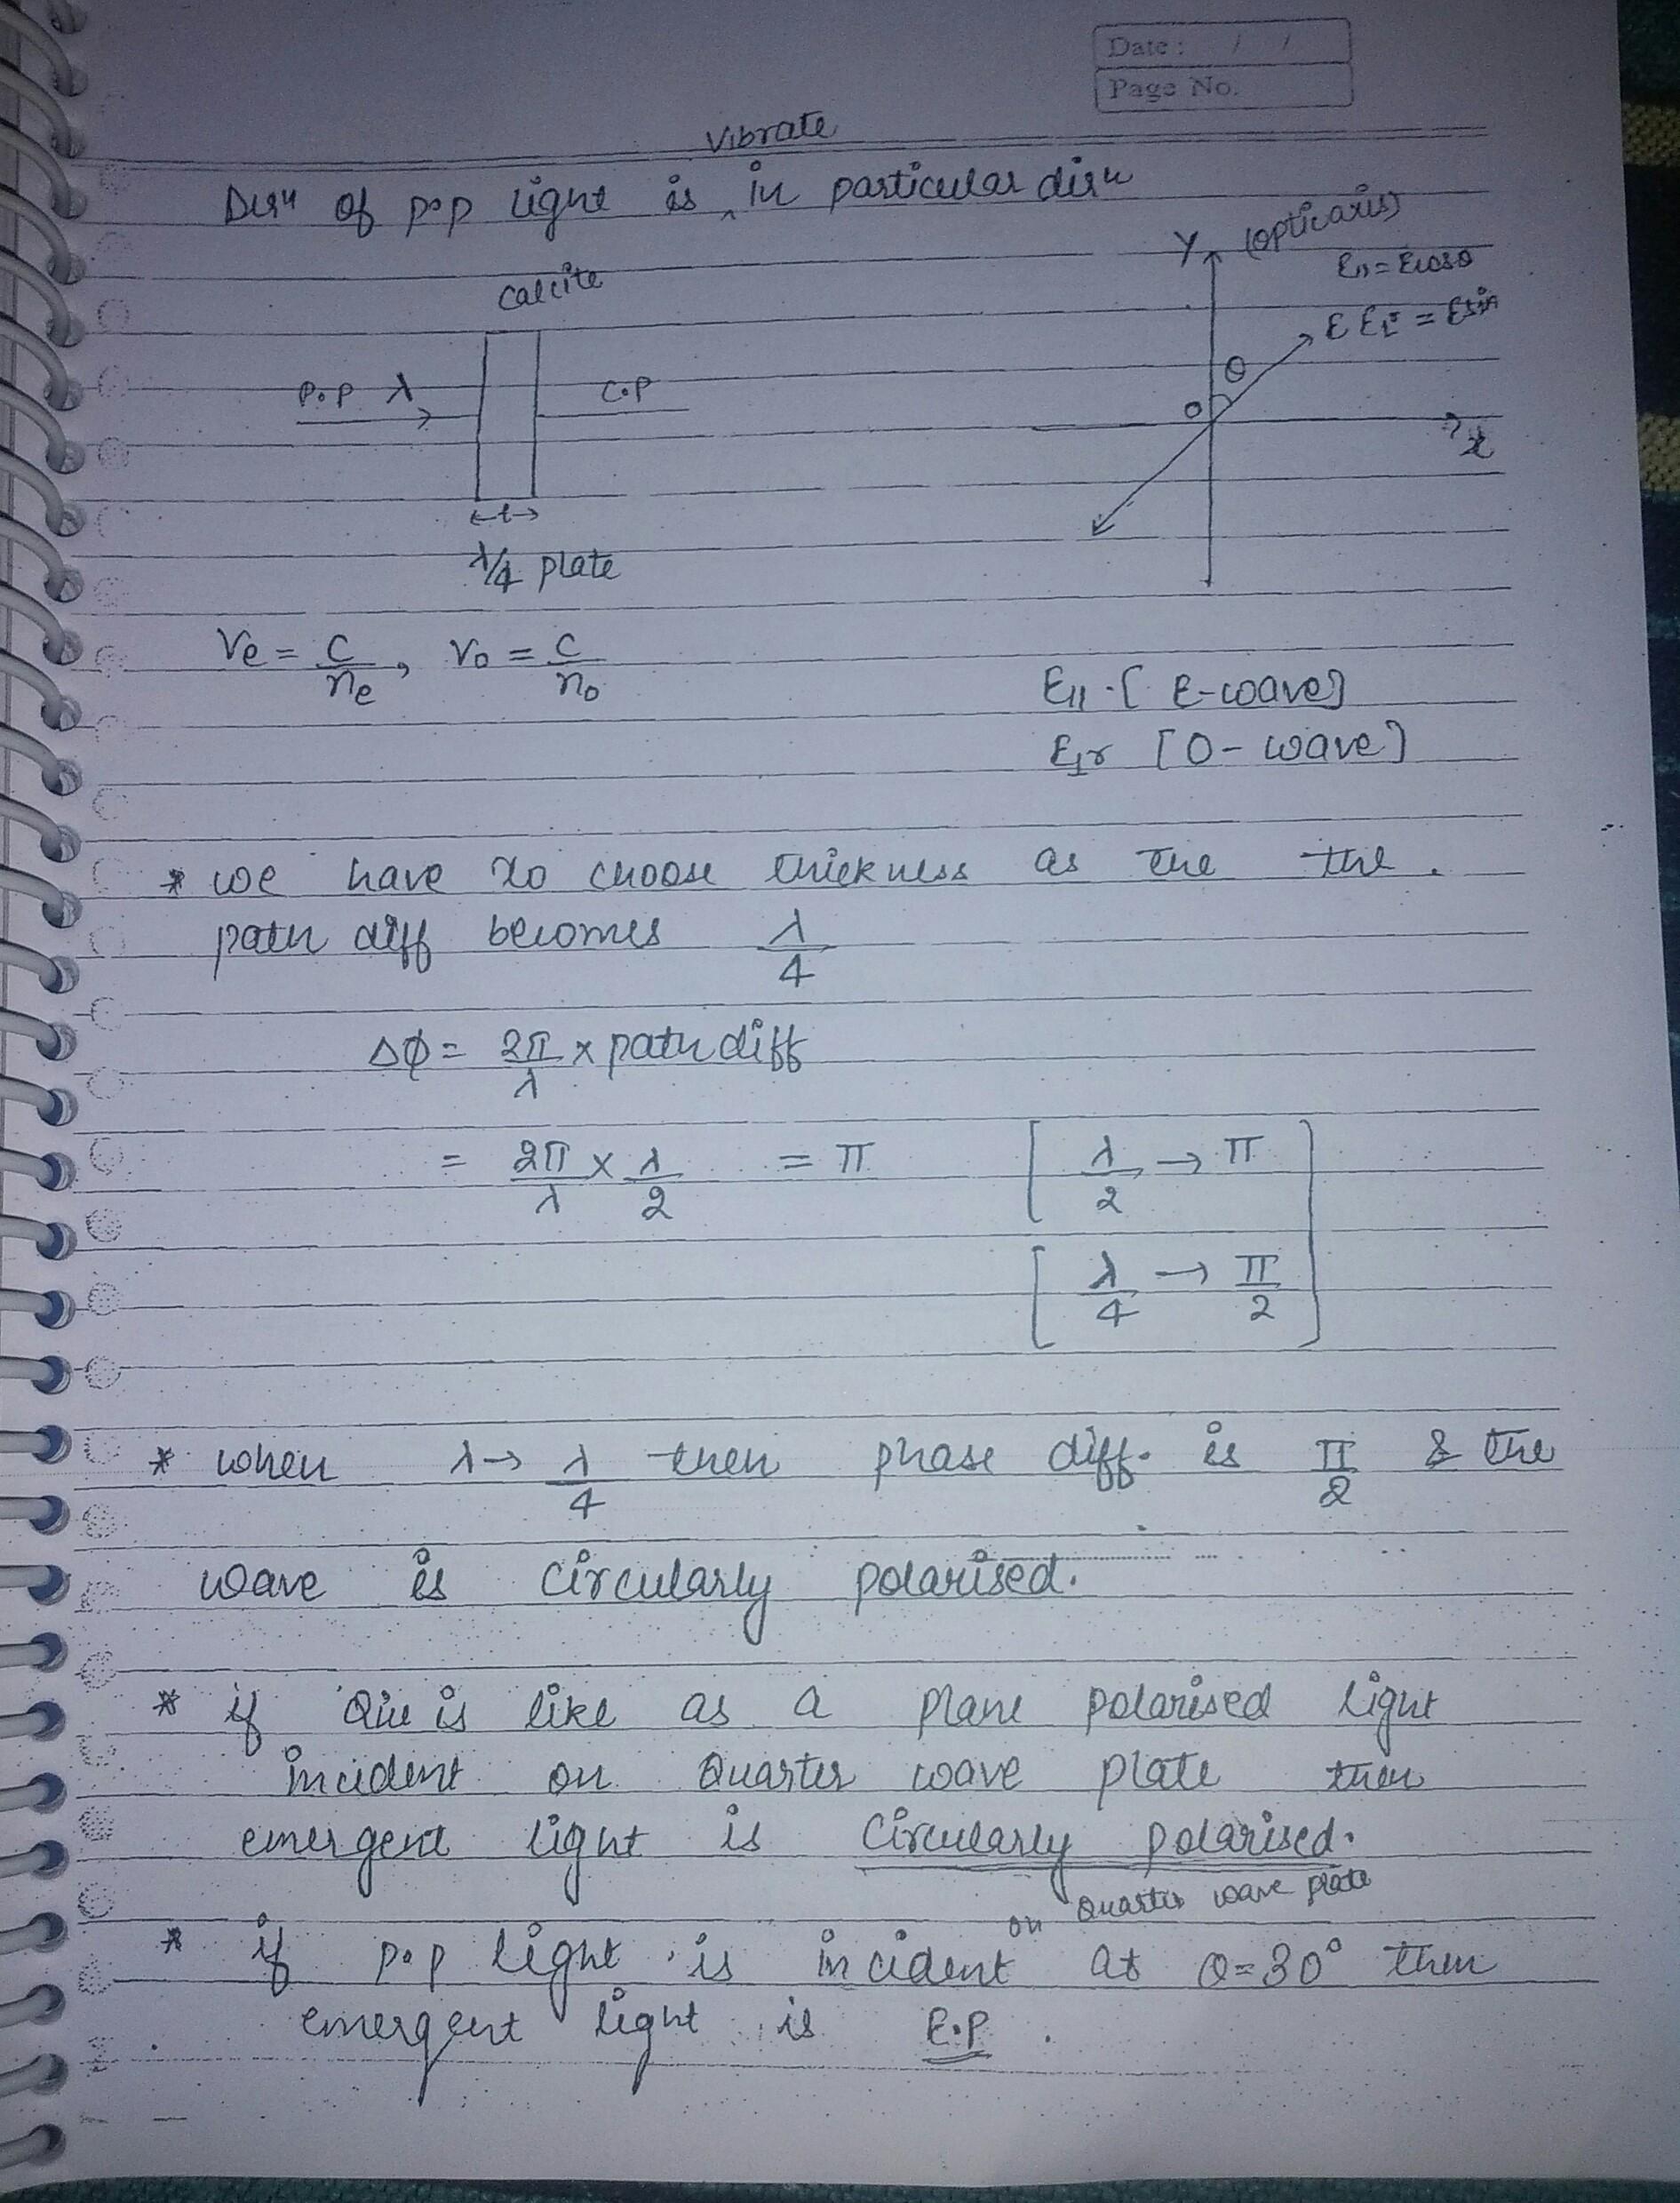 Date : / /
Page No.
Vibrate
Dirn of p.p light is ^ in particular dirn
Calcite
P.P λ
C.P
←t→
λ/4 plate
Y (optic axis)
E11 = Ecosθ
E E⊥r = Esin
θ
O
x
Ve = c/ne , Vo = c/no
E11 · [ E-wave]
E⊥r [O - wave]
* we have to choose thickness as the the .
path diff becomes λ/4
Δϕ = 2π/λ × path diff
= 2π/λ × λ/2 = π
[ λ/2 → π ]
[ λ/4 → π/2 ]
* when λ → λ/4 then phase diff. is π/2 & the
wave is circularly polarised.
* if Que is like as a plane polarised light
incident on Quarter wave plate then
emergent light is Circularly polarised.
on Quarter wave plate
* if p.p light is incident at θ=30° then
emergent light is E.P .